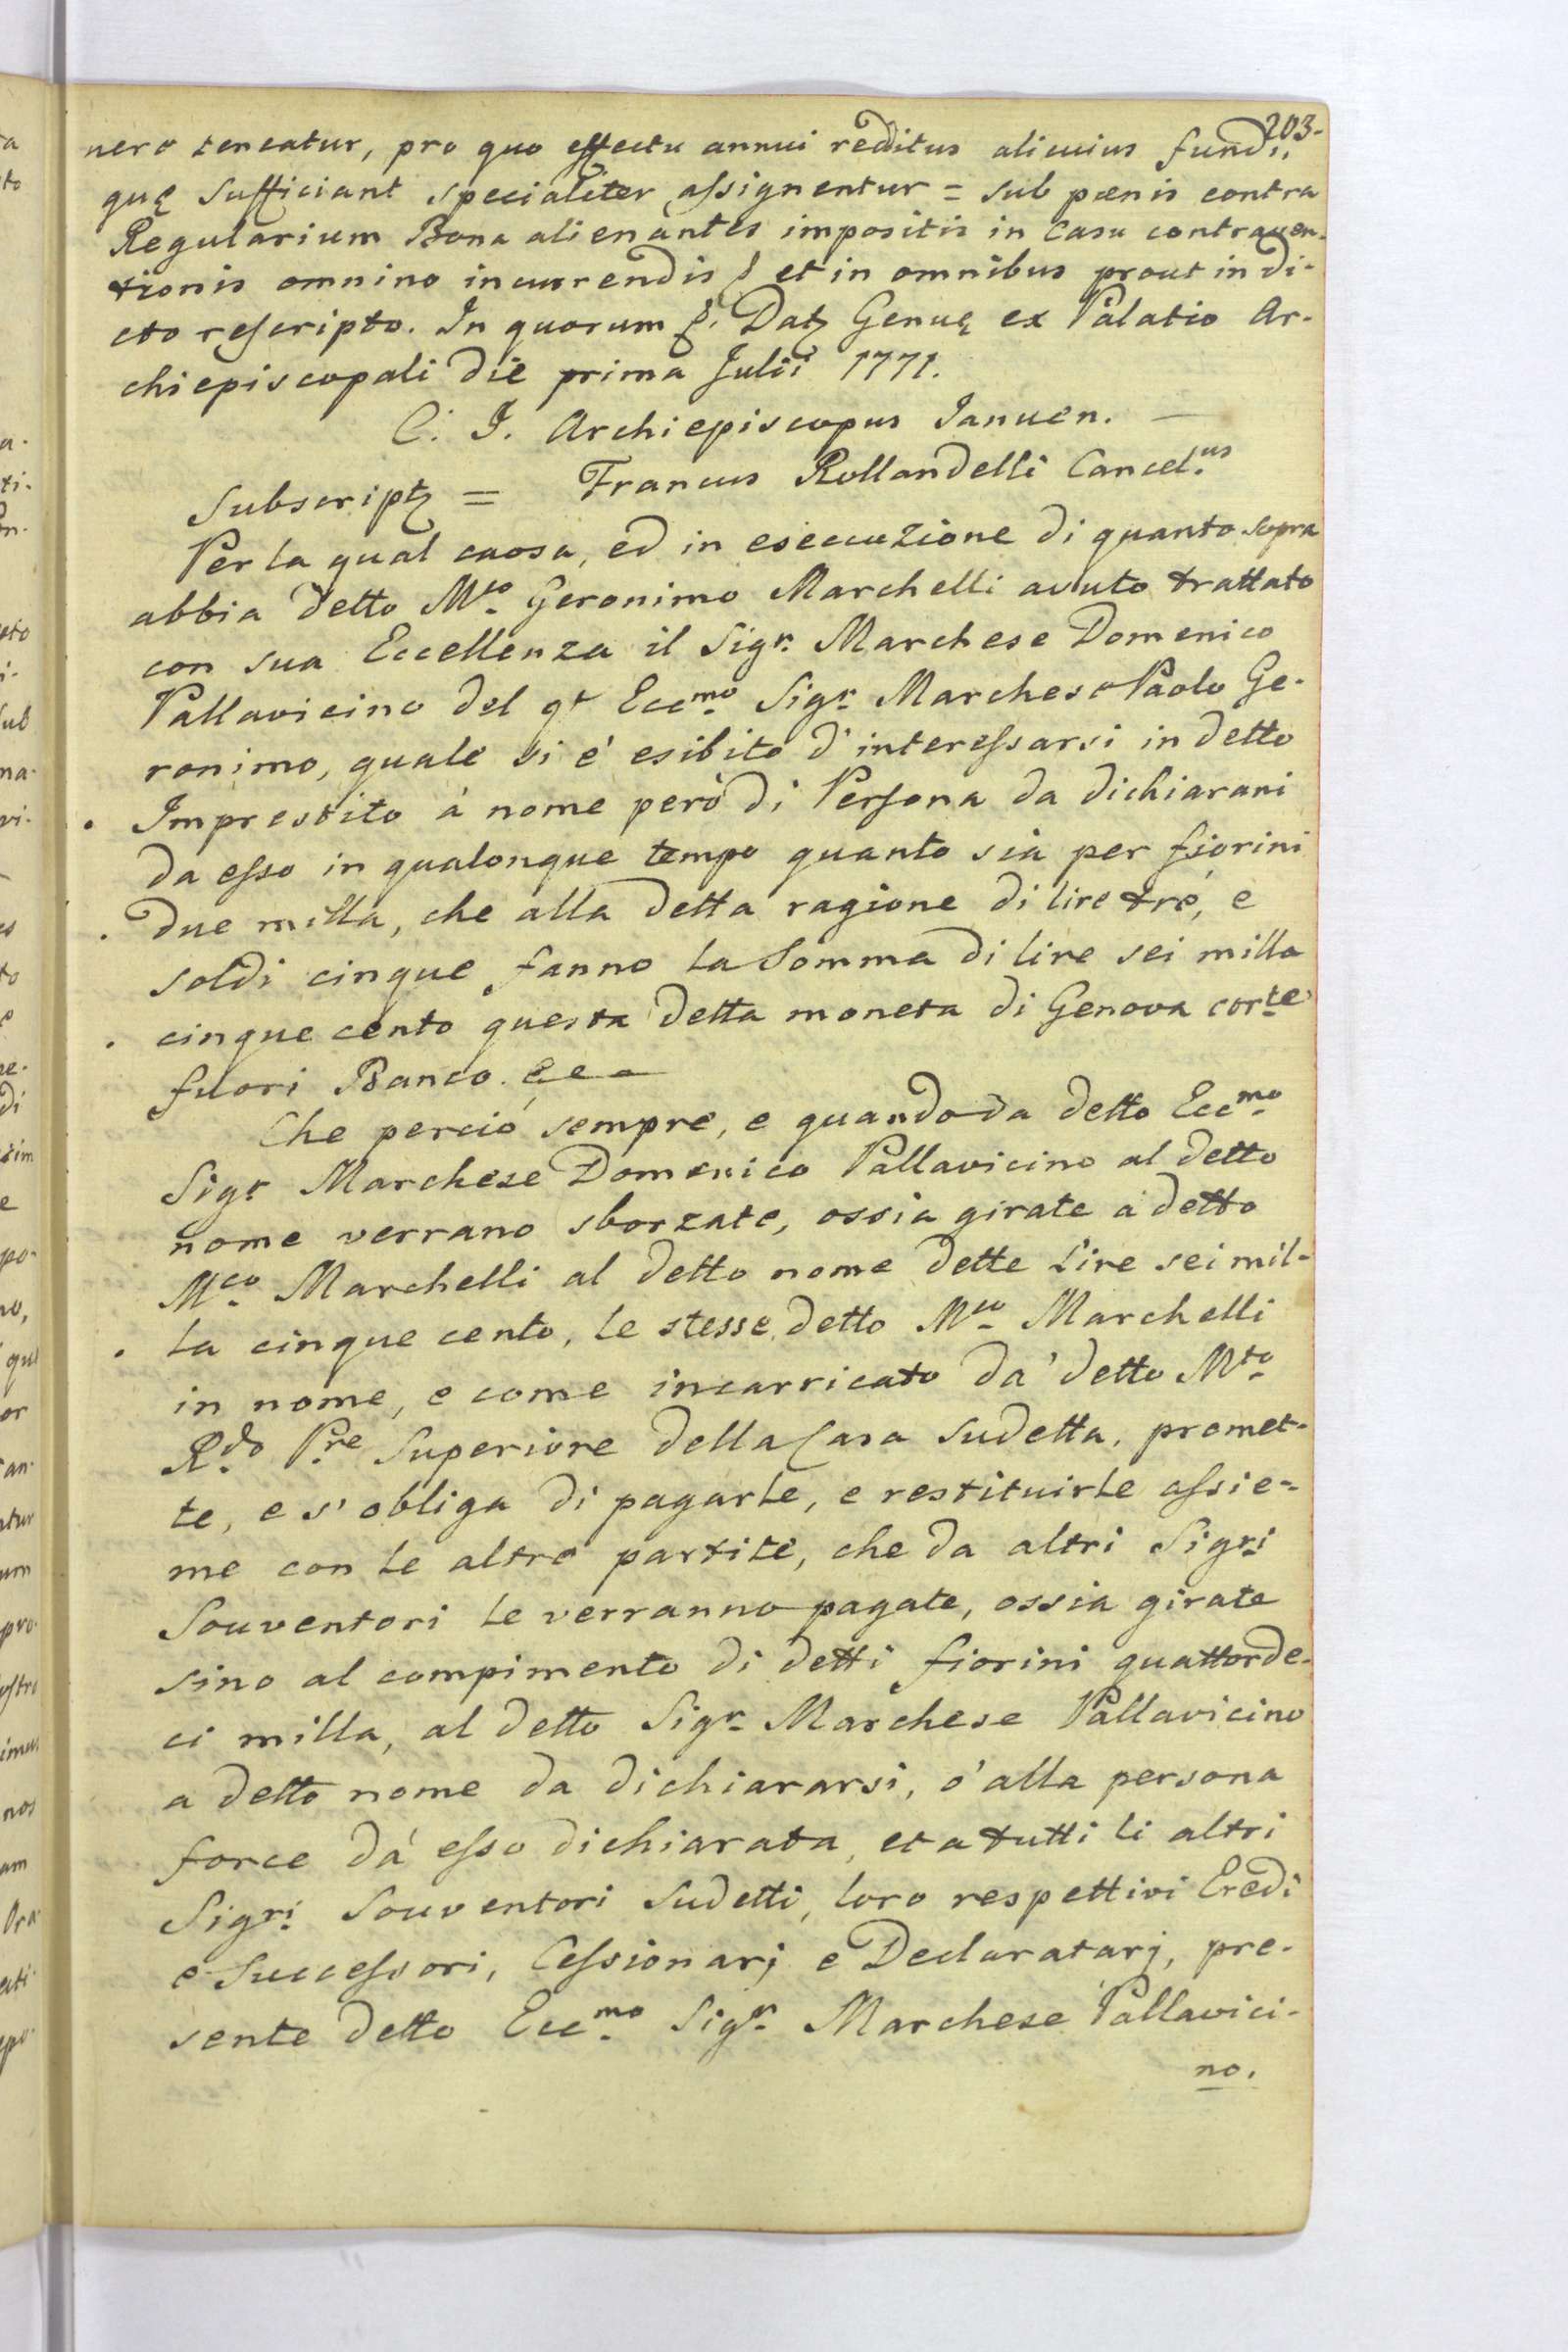 203.
nere teneatur, pro quo effectu annui redditus alicuius fundi,
quę sufficiant specialiter assignentur = sub pœnis contra
Regularium Bona alienantes impositis in Casu contraven-
tionis omnino incurrendis & et in omnibus prout in di-
cto rescripto. In quorum &. Dat Genuę ex Palatio Ar-
chiepiscopali die prima Julii 1771.
C. I. Archiepiscopus Januen. —
Subscript = Francus Rollandelli Cancel.us
Per la qual caosa, ed in eseccuzione di quanto sopra
abbia detto Mto. Geronimo Marchelli avuto trattato
con sua Eccellenza il Sigr. Marchese Domenico
Pallavicino del qt Eccmo. Sigr. Marchese Paolo Ge-
ronimo, quale si é esibito d'interessarsi in detto
Imprestito á nome però di Persona da dichiarani
da esso in qualonque tempo quanto sia per fiorini
due milla, che alla detta ragione di lire tré, e
soldi cinque fanno la Somma di lire sei milla
cinque cento questa detta moneta di Genova corte
fuori Banco. &e —
Che perció sempre, e quando da detto Eccmo.
Sigr Marchese Domenico Pallavicino al detto
nome verrano sborzate, ossia girate a detto
Mco. Marchelli al detto nome dette Lire sei mil-
la cinque cento, le stesse detto Mco. Marchelli
in nome, e come incarricato da' detto Mto.
R.do P.re Superiore della Casa Sudetta, promet-
te, e s'obliga di pagarle, e restituirle assie-
me con le altre partite, che da altri Sigri
Souventori le verranno pagate, ossia girate
sino al compimento di detti fiorini quattorde-
ci milla, al detto Sigr. Marchese Pallavicino
a detto nome da dichiararsi, ó alla persona
force dá esso dichiarata, et a tutti li altri
Sigri Souventori Sudetti, loro respettivi Eredi
e Successori, Cessionarj e Declaratarj, pre-
sente detto Eccmo. Sigr. Marchese Pallavici-
no.